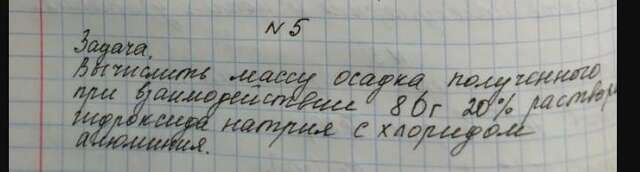 N 5
Задача.
Вычислить массу осадка полученного
при взаимодействии 80г 20% раствора
гидроксида натрия с хлоридом
алюминия.